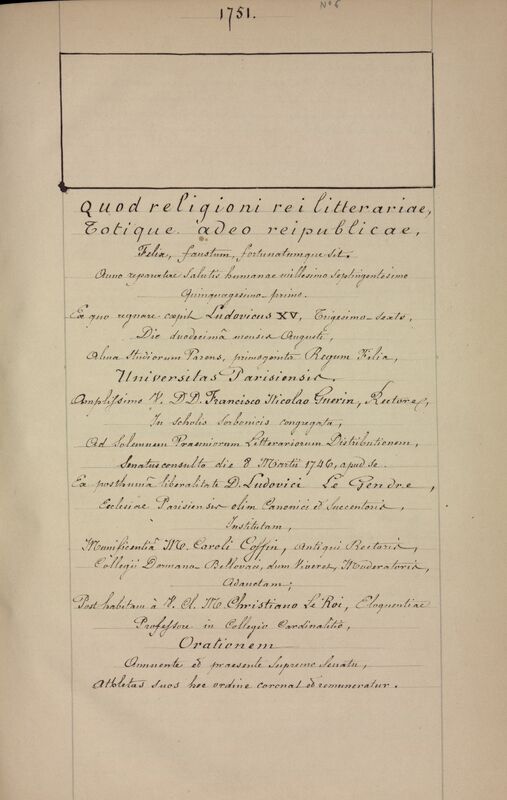 N° 6
1751.
Quod religioni rei litterariae,
Totique adeo reipublicae,
Felix, faustum, fortunatumque sit.
Anno reparatae salutis humanae millesimo septingentesimo
Quinquagesimo primo.
Ex quo regnare cœpit Ludovicus XV, Trigesimo-sexto,
Die duodecimâ mensis Augusti,
Alma Studiorum Parens, primogenita Regum Filia,
Universitas Parisiensis.
Amplissimo V. D D. Francisco Nicolao Guerin, Rectore,
In scholis Sorbonicis congregata,
Ad Solemnem Praemiorum Litterariorum Distributionem,
Senatusconsulto die 8 Martii 1746, apud se
Ex posthumâ liberalitate D. Ludovici Le Gendre,
Ecclesiae Parisiensis olim Canonici et Succentoris,
Institutam,
Munificentiâ M. Caroli Coffin, Antiqui Rectoris,
Collegii Dormano-Bellovaci, dum Viveret, Moderatoris,
Adauctam;
Post habitam à V. Cl. M. Christiano Le Roi, Eloquentiae
Professore in Collegio Cardinalitio,
Orationem
Annuente et praesente Supremo Senatu,
Athletas suos hoc ordine coronat et remuneratur.